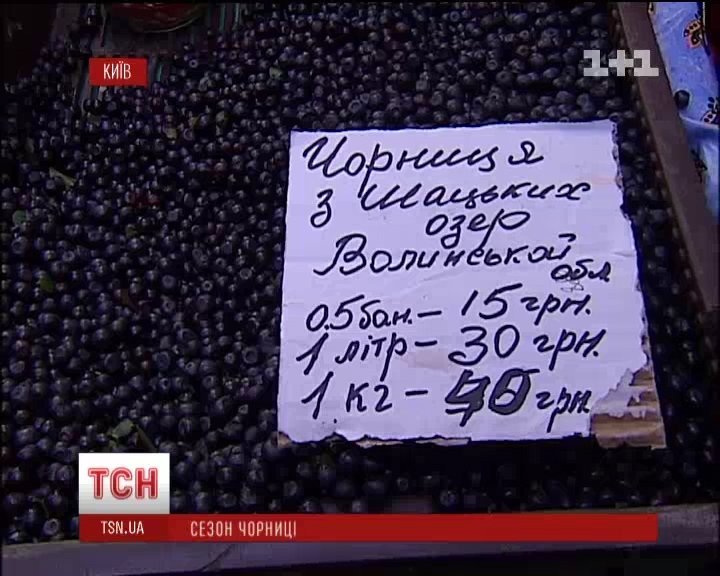 КИЇВ
1+1
Чорниця
з Шацьких
озер
Волинськой
обл
0.5 бан. – 15 грн.
1 літр – 30 грн.
1 кг – 40 грн
ТСН
TSN.UA
СЕЗОН ЧОРНИЦІ